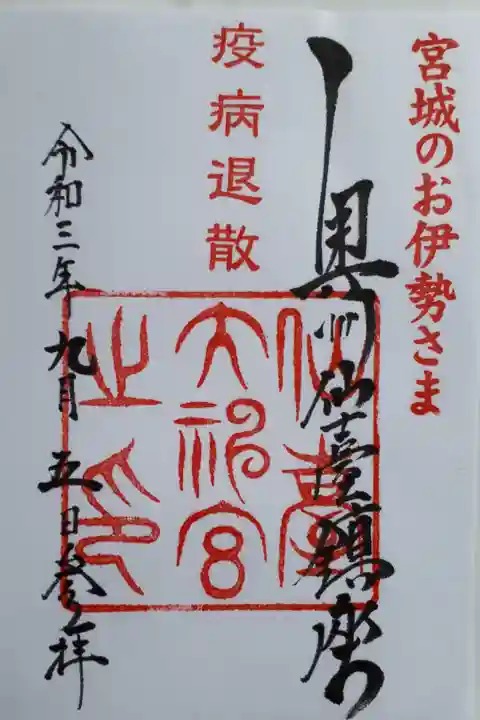 宮城のお伊勢さま
奥州仙臺鎮座
疫病退散
仙臺
大神宮
之印
令和三年九月五日参拝